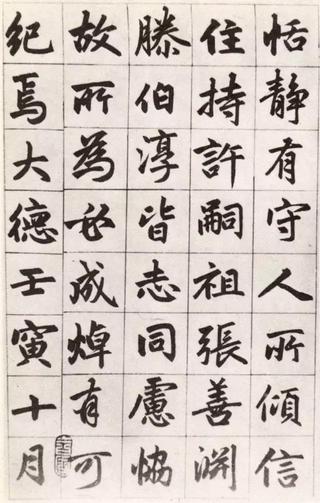 恬静有守人所傾信
住持許嗣祖張善渊
滕伯淳皆志同慮恊
故所為必成焯有可
紀焉大德壬寅十月